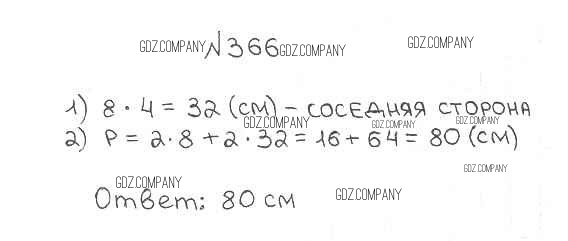 GDZ.COMPANY №366 GDZ.COMPANY GDZ.COMPANY
1) 8 · 4 = 32 (см) – соседняя сторона
GDZ.COMPANY GDZ.COMPANY GDZ.COMPANY
2) P = 2·8 + 2·32 = 16 + 64 = 80 (см)
GDZ.COMPANY
GDZ.COMPANY GDZ.COMPANY
Ответ: 80 см